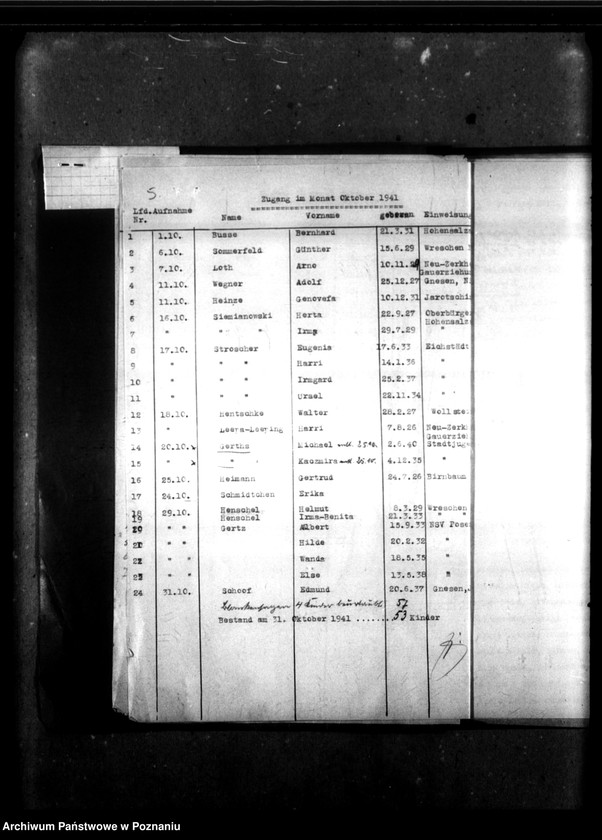 5
Zugang im Monat Oktober 1941
Lfd. Aufnahme Name Vorname geboren Einweisung
Nr.
1 1.10. Busse Bernhard 21.3.31 Hohensalza
2 6.10. Sommerfeld Günther 15.6.29 Wreschen
3 7.10. Loth Arno 10.11.29 Neu-Zerkh
Gauerziehu
4 11.10. Wegner Adolf 25.12.27 Gnesen, N
5 11.10. Heinze Genovefa 10.12.31 Jarotschi
6 16.10. Siemianowski Herta 22.9.27 Oberbürge
Hohensalz
7 " " " Irma 29.7.29 "
8 17.10. Stroscher Eugenia 17.6.33 Eichstädt
9 " " " Harri 14.1.36 "
10 " " " Irmgard 25.2.37 "
11 " " " Ursel 22.11.34 "
12 18.10. Hentschke Walter 28.2.27 Wollste
13 " Harri 7.8.26 Neu-Zerkh
Gauerzie
14 20.10. Gerths Michael 2.6.40 Stadtjug
15 " " " Kasmira 4.12.35 "
16 25.10. Heimann Gertrud 24.7.26 Birnbaum
17 24.10. Schmidtchen Erika
18 29.10. Henschel Helmut 8.3.29 Wreschen
19 Henschel Irma-Benita 21.3.33 " "
20 " " Gertz Albert 15.9.33 NSV Pose
21 " " Hilde 20.2.32 "
22 " " Wanda 18.5.35 "
23 " " Else 13.5.38 "
24 31.10. Schoof Edmund 20.6.37 Gnesen,
4 Kinder beurlaubt 57
Bestand am 31. Oktober 1941 ....... 53 Kinder
Archiwum Państwowe w Poznaniu